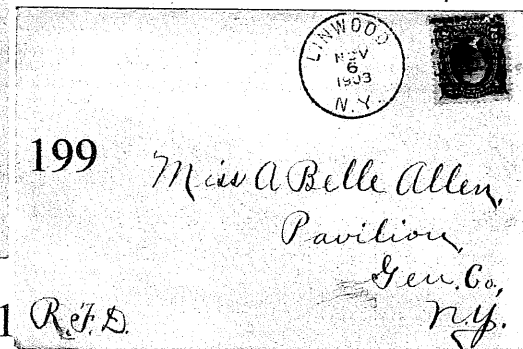 LINWOOD
NOV
6
1903
N.Y.
199
Miss A Belle Allen,
Pavilion,
Gen. Co.,
1 R.F.D.
N.Y.